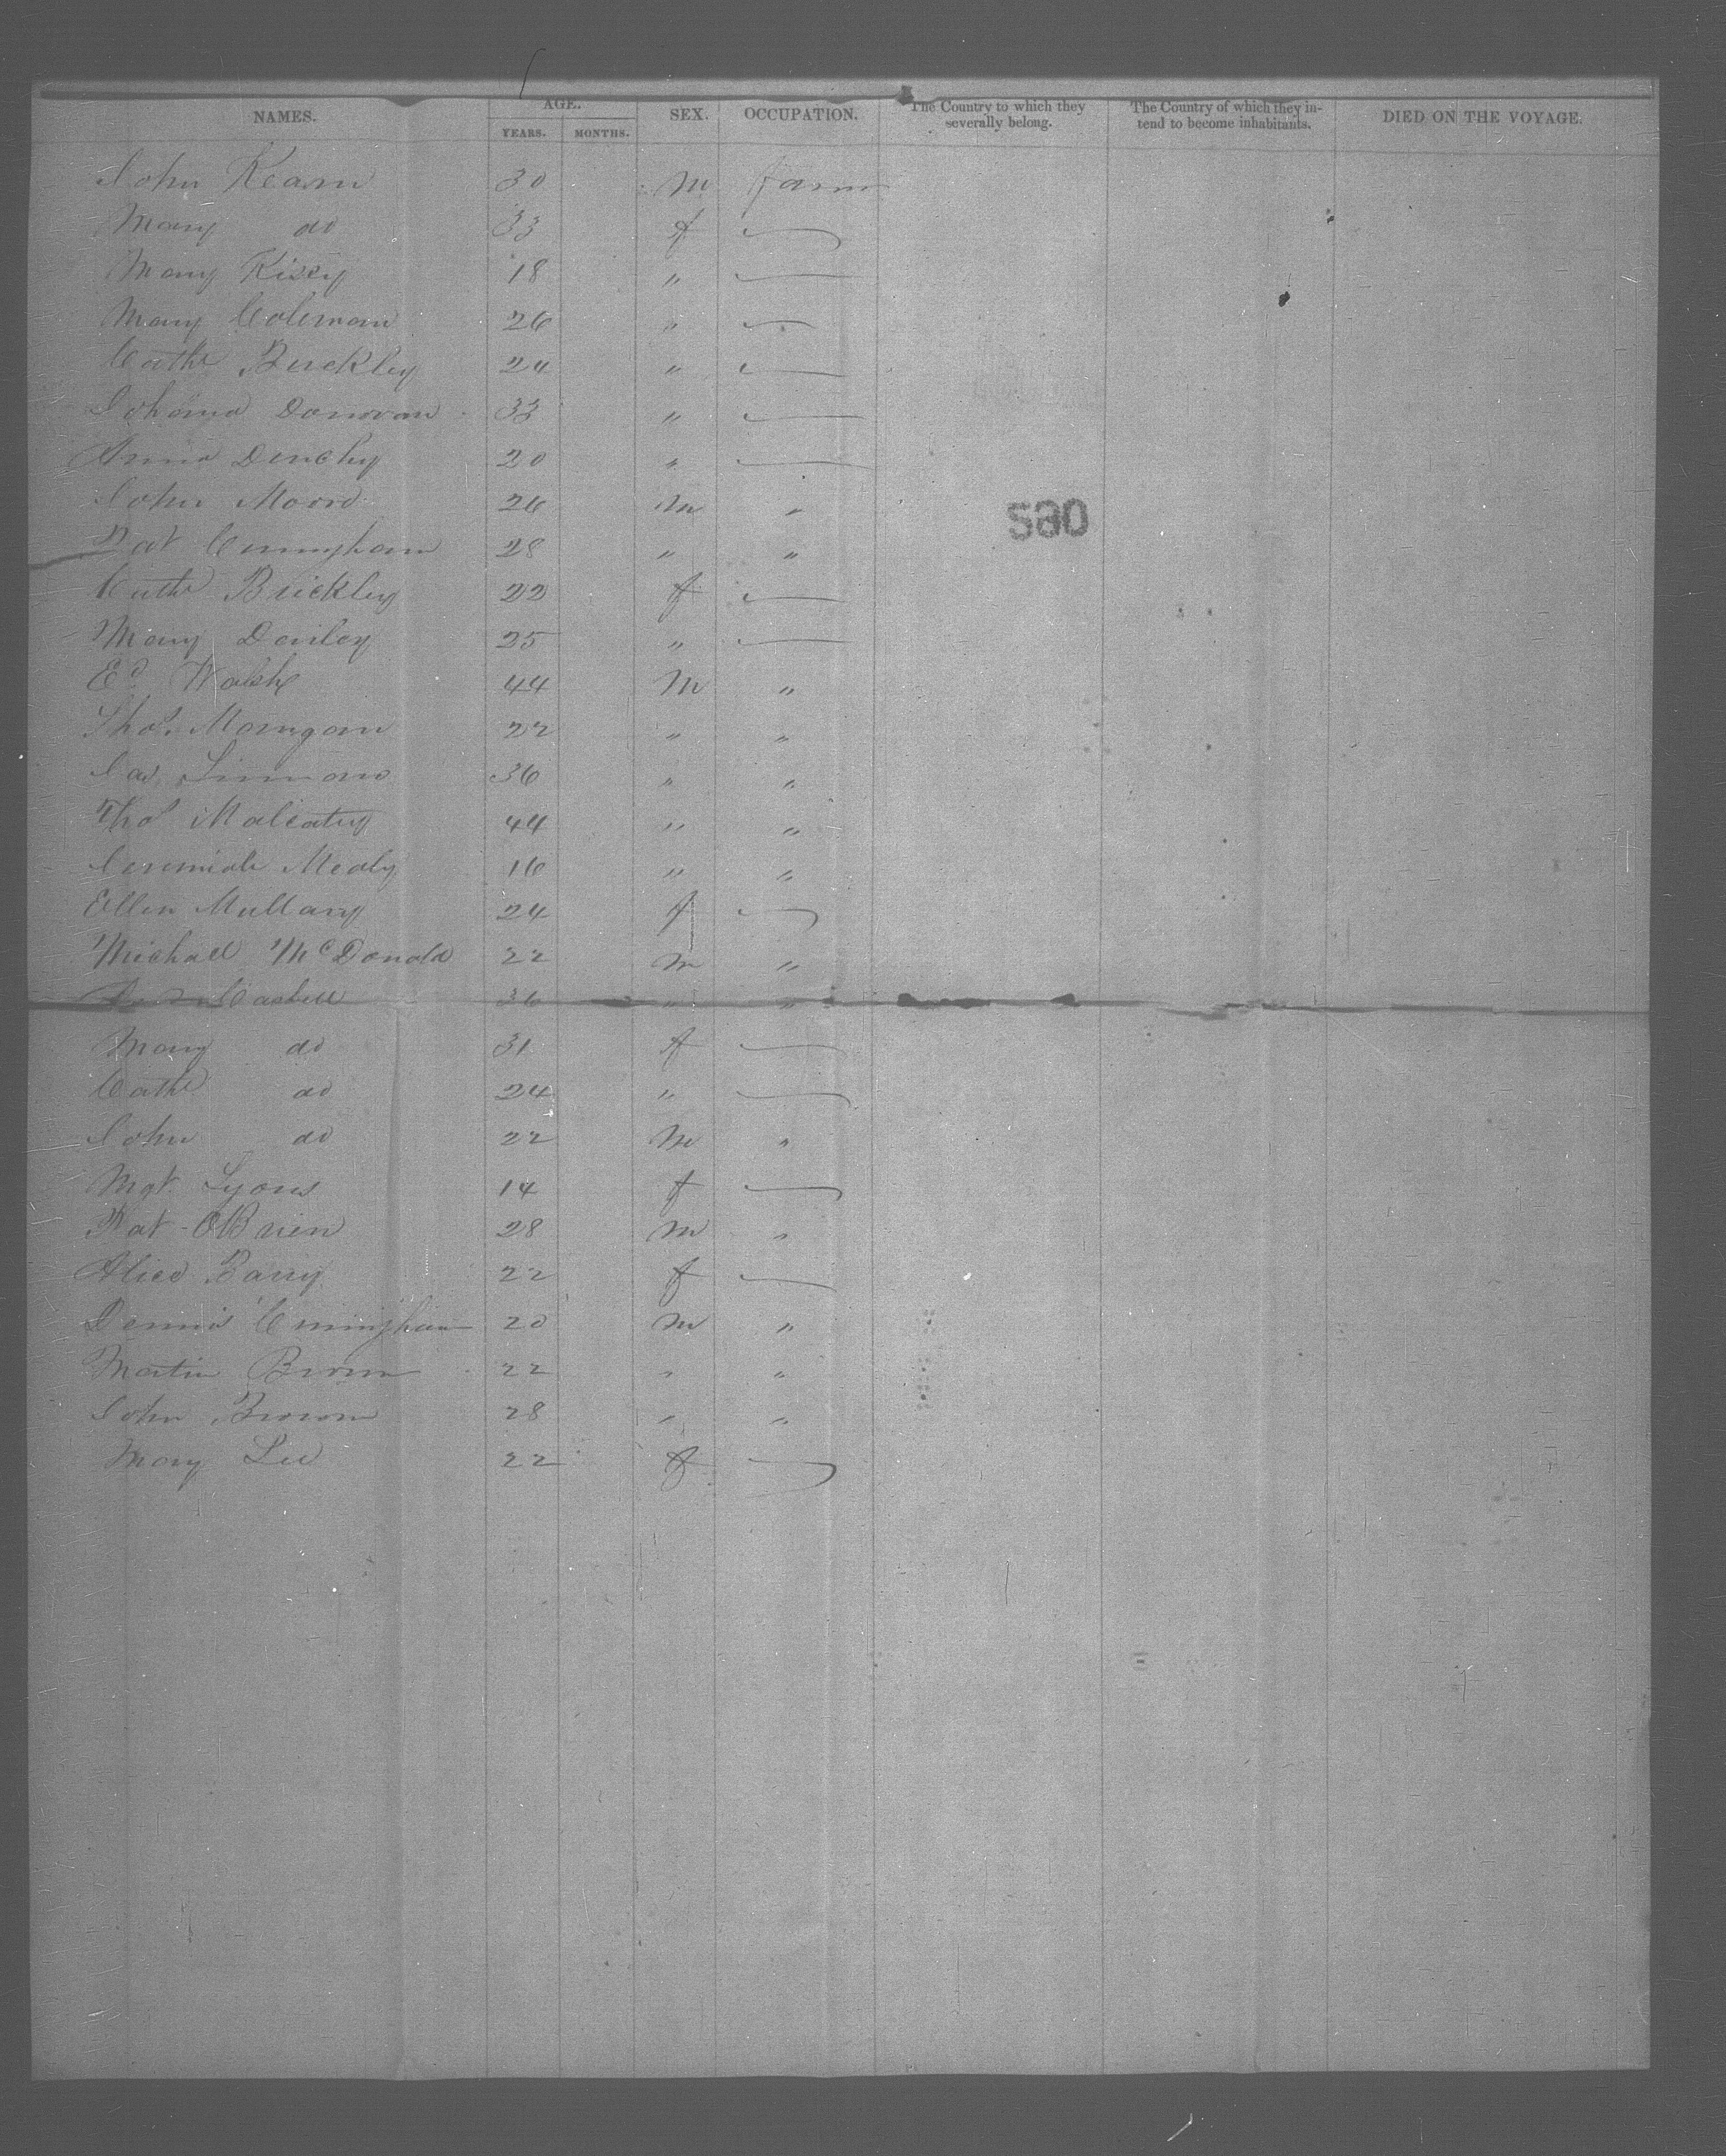 NAMES. AGE. YEARS. MONTHS. SEX. OCCUPATION. The Country to which they severally belong. The Country of which they intend to become inhabitants. DIED ON THE VOYAGE.
John Kearn 30 m farm
Mary do 33 f
Mary 18 "
Mary Coleman 26 "
Cathe Buckley 24 "
Johana Donovan 33 "
Anna 20 "
John Moore 26 m "
Pat Cuningham 28 " "
Cathe Brickley 22 f
Mary 25 "
Ed Walsh 44 m "
Thos 22 " "
36 " "
Thos 44 " "
Jeremiah Mealy 16 " "
Ellen Mullany 24 f
Michael McDonald 22 m "
36 " "
Mary do 31 f
Cathe do 24 "
John do 22 m "
Mgt. Lyons 14 f
Pat OBrien 28 m "
Alice Barry 22 f
Dennis Cuningham 20 m "
Martin Brown 22 " "
John Brown 28 " "
Mary Lee 22 f